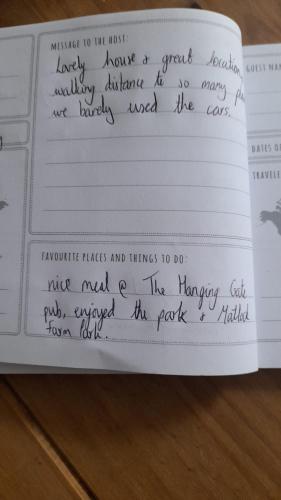 MESSAGE TO THE HOST:
Lovely house & great location,
walking distance to so many
we barely used the cars.
GUEST
DATES
FAVOURITE PLACES AND THINGS TO DO:
nice meal @ The Hanging Gate
pub, enjoyed the park & Matlock
farm park.